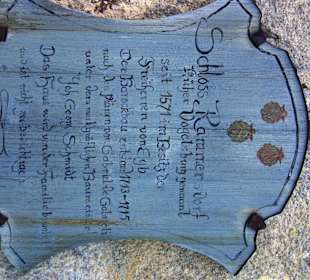 Schloss Rammersdorf
früher Vogelsburg genannt
seit 1571 im Besitz der
Freiherrn von Eyb
Der Barockbau entstand 1713-1715
nach den Plänen von Gabriel de Gabrieli
unter dem
Joh. Georg Schmidt
Das Haus wird von der Familie
und ist nicht zu besichtigen